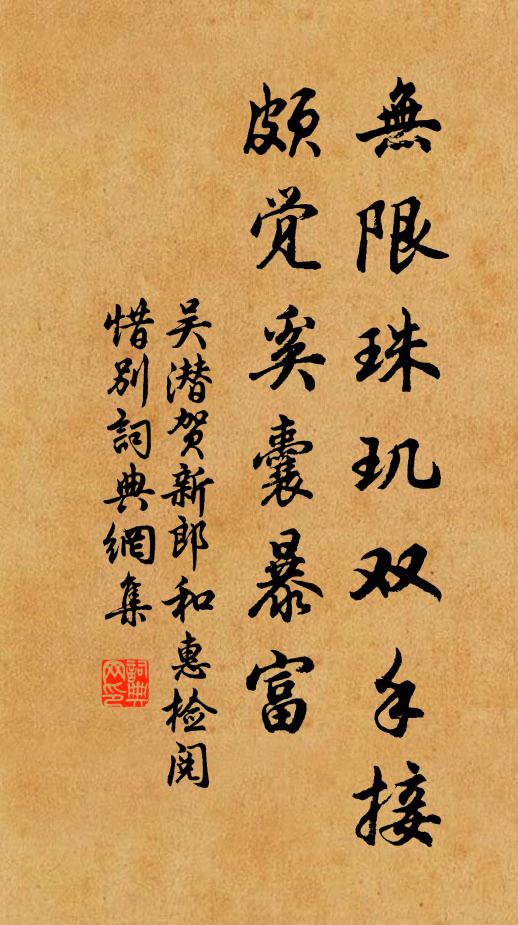 無限珠玑双手接
颇觉奚囊暴富
吴潜贺新郎和惠检阅
惜别詞典網集
詞典网印